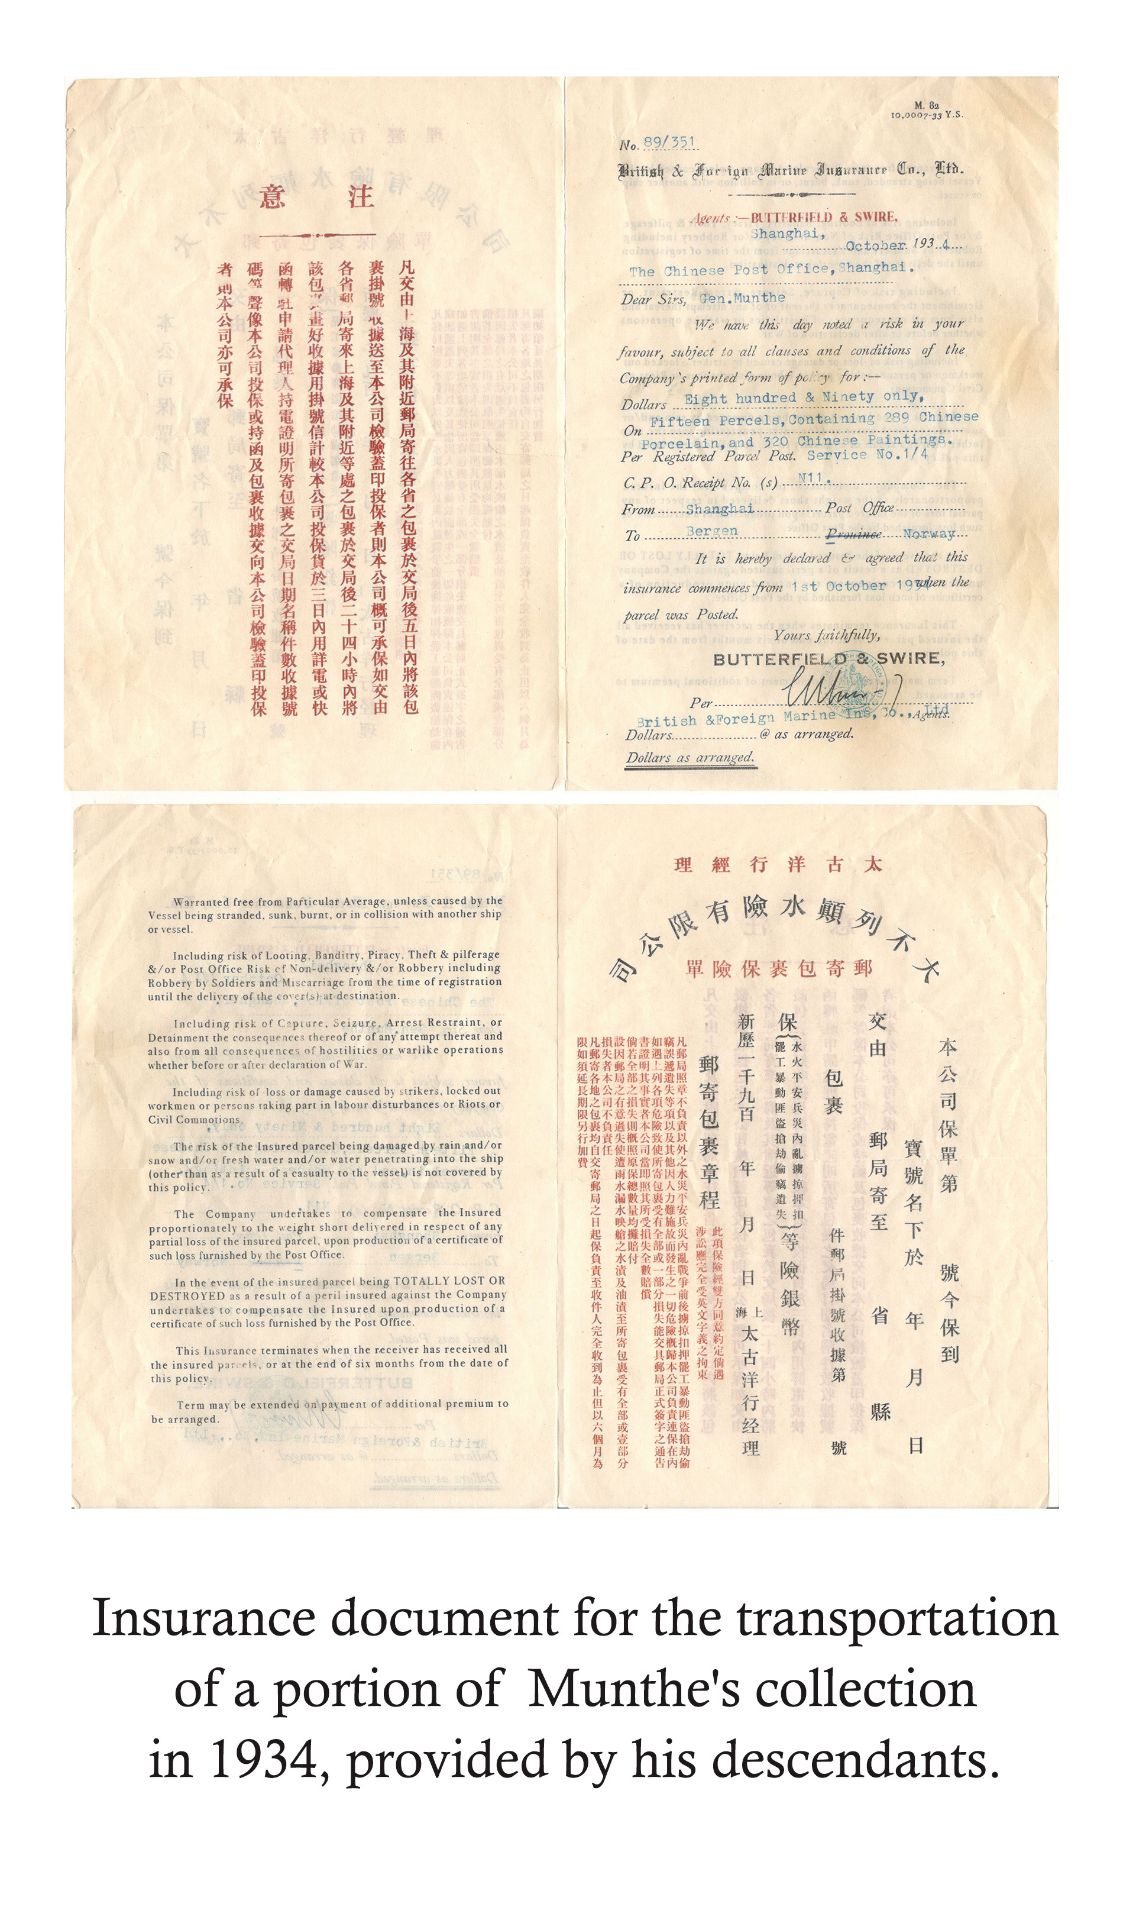 注意
凡交由上海及其附近郵局寄往各省之包裹於交局後五日內將該包
裹掛號收據送至本公司檢驗蓋印投保者則本公司概可承保如交由
各省郵局寄來上海及其附近等處之包裹於交局後二十四小時內將
該包裹畫好收據用掛號信計較本公司投保貨於三日內用詳電或快
函轉駐申請代理人持電證明所寄包裹之交局日期名稱件數收據號
碼等聲像本公司投保或持函及包裹收據交向本公司檢驗蓋印投保
者則本公司亦可承保
M. 82
10,0007-33 Y.S.
No. 89/351
British & Foreign Marine Insurance Co., Ltd.
Agents:—BUTTERFIELD & SWIRE,
Shanghai,
October 1934
The Chinese Post Office, Shanghai.
Dear Sirs, Gen.Munthe
We have this day noted a risk in your
favour, subject to all clauses and conditions of the
Company's printed form of policy for:—
Dollars Eight hundred & Ninety only,
On Fifteen Percels, Containing 289 Chinese
Porcelain, and 320 Chinese Paintings.
Per Registered Parcel Post. Service No.1/4
C. P. O. Receipt No. (s) N11.
From Shanghai Post Office
To Bergen Province Norway
It is hereby declared & agreed that this
insurance commences from 1st October 1934 when the
parcel was Posted.
Yours faithfully,
BUTTERFIELD & SWIRE,
Per
British &Foreign Marine Ins, Co., Ltd Agents.
Dollars @ as arranged.
Dollars as arranged.
Warranted free from Particular Average, unless caused by the
Vessel being stranded, sunk, burnt, or in collision with another ship
or vessel.
Including risk of Looting, Banditry, Piracy, Theft & pilferage
&/or Post Office Risk of Non-delivery &/or Robbery including
Robbery by Soldiers and Miscarriage from the time of registration
until the delivery of the cover(s) at destination.
Including risk of Capture, Seizure, Arrest Restraint, or
Detainment the consequences thereof or of any attempt thereat and
also from all consequences of hostilities or warlike operations
whether before or after declaration of War.
Including risk of loss or damage caused by strikers, locked out
workmen or persons taking part in labour disturbances or Riots or
Civil Commotions.
The risk of the Insured parcel being damaged by rain and/or
snow and/or fresh water and/or water penetrating into the ship
(other than as a result of a casualty to the vessel) is not covered by
this policy.
The Company undertakes to compensate the Insured
proportionately to the weight short delivered in respect of any
partial loss of the insured parcel, upon production of a certificate of
such loss furnished by the Post Office.
In the event of the insured parcel being TOTALLY LOST OR
DESTROYED as a result of a peril insured against the Company
undertakes to compensate the Insured upon production of a
certificate of such loss furnished by the Post Office.
This Insurance terminates when the receiver has received all
the insured parcels, or at the end of six months from the date of
this policy.
Term may be extended on payment of additional premium to
be arranged.
太古洋行經理
大不列顛水險有限公司
郵寄包裹保險單
本公司保單第 號今保到
寶號名下於 年 月 日
交由 郵局寄至 省 縣
包裹 件郵局掛號收據第 號
保 水火平安兵災內亂擄掠押扣
罷工暴動匪盜搶劫偷竊遺失 等險銀幣
新歷一千九百 年 月 日 上海 太古洋行经理
郵寄包裹章程 此項保險經雙方同意約定倘遇
涉訟應完全受英文字義之拘束
凡郵局照章不負責以外之水災平安兵災內亂戰爭前後擄掠扣押罷工暴動匪盜搶劫偷
竊誤遞遺失等項以及其他因人力難施故而發生之一切危險概歸本公司負責連保在內
如遇上列各項危險致使所寄包裹受有全部或一部分損失能交具郵局正式簽字之通告
書證明其事實者本公司當即照其所受損失全數賠償
倘若全部之損失則概照原保總數量均攤賠付
設因郵局之有意過失使遭雨水漏水映艙之水漬及油漬至所寄包裹受有全部或壹部分
損失者本公司不負責任
凡郵寄各地之包裹均自交寄郵局之日起保負責至收件人完全收到為止但以六個月為
限如須延長期限另行加費
Insurance document for the transportation
of a portion of Munthe's collection
in 1934, provided by his descendants.